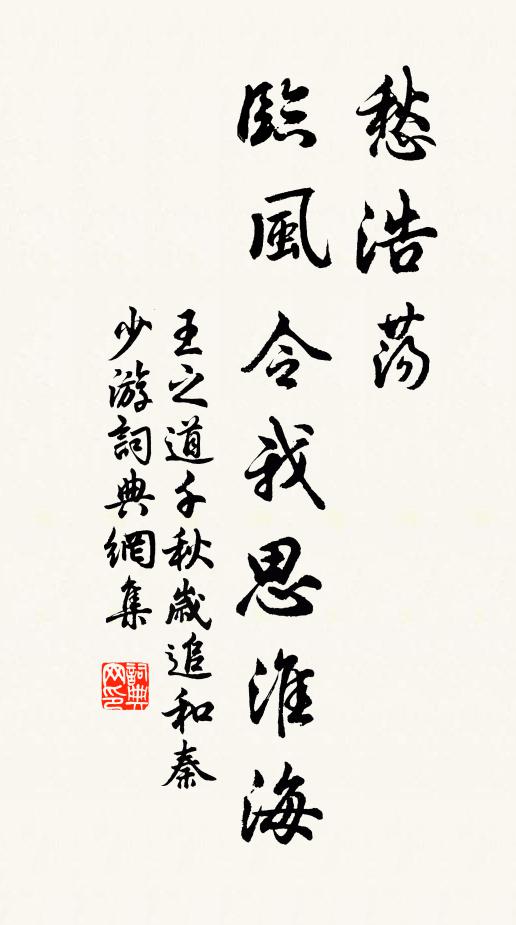 愁浩荡
臨風令我思淮海
王之道千秋歲追和秦
少游詞典網集
詞典网印